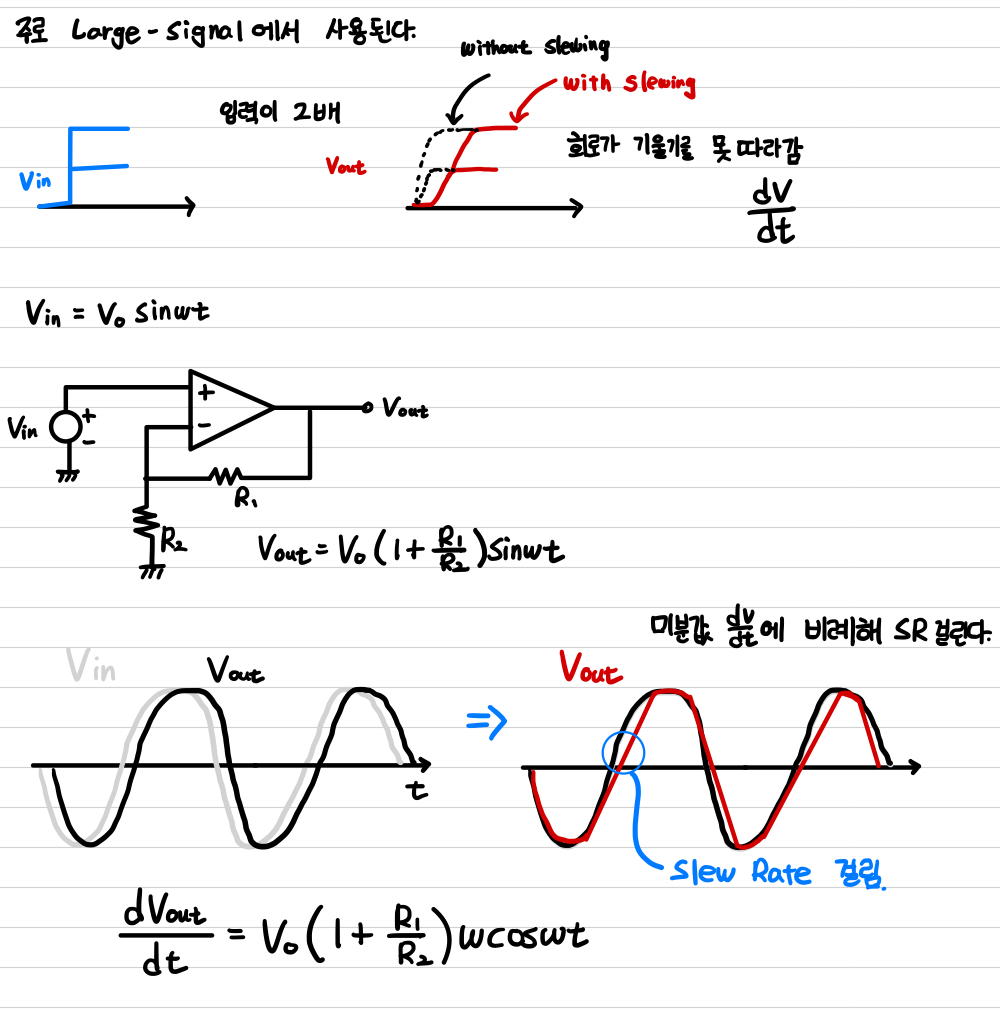 주로 Large-signal에서 사용된다.
without slewing
with slewing
입력이 2배
Vin
Vout
회로가 기울기를 못 따라감
dV
dt
Vin = V₀ sinwt
Vin
+
-
+
-
Vout
R₁
R₂
Vout = V₀(1 + R₁/R₂)sinwt
미분값 dv/dt에 비례해 SR 걸린다.
Vin
Vout
t
=>
Vout
Slew Rate 걸림.
dVout/dt = V₀(1 + R₁/R₂)wcoswt